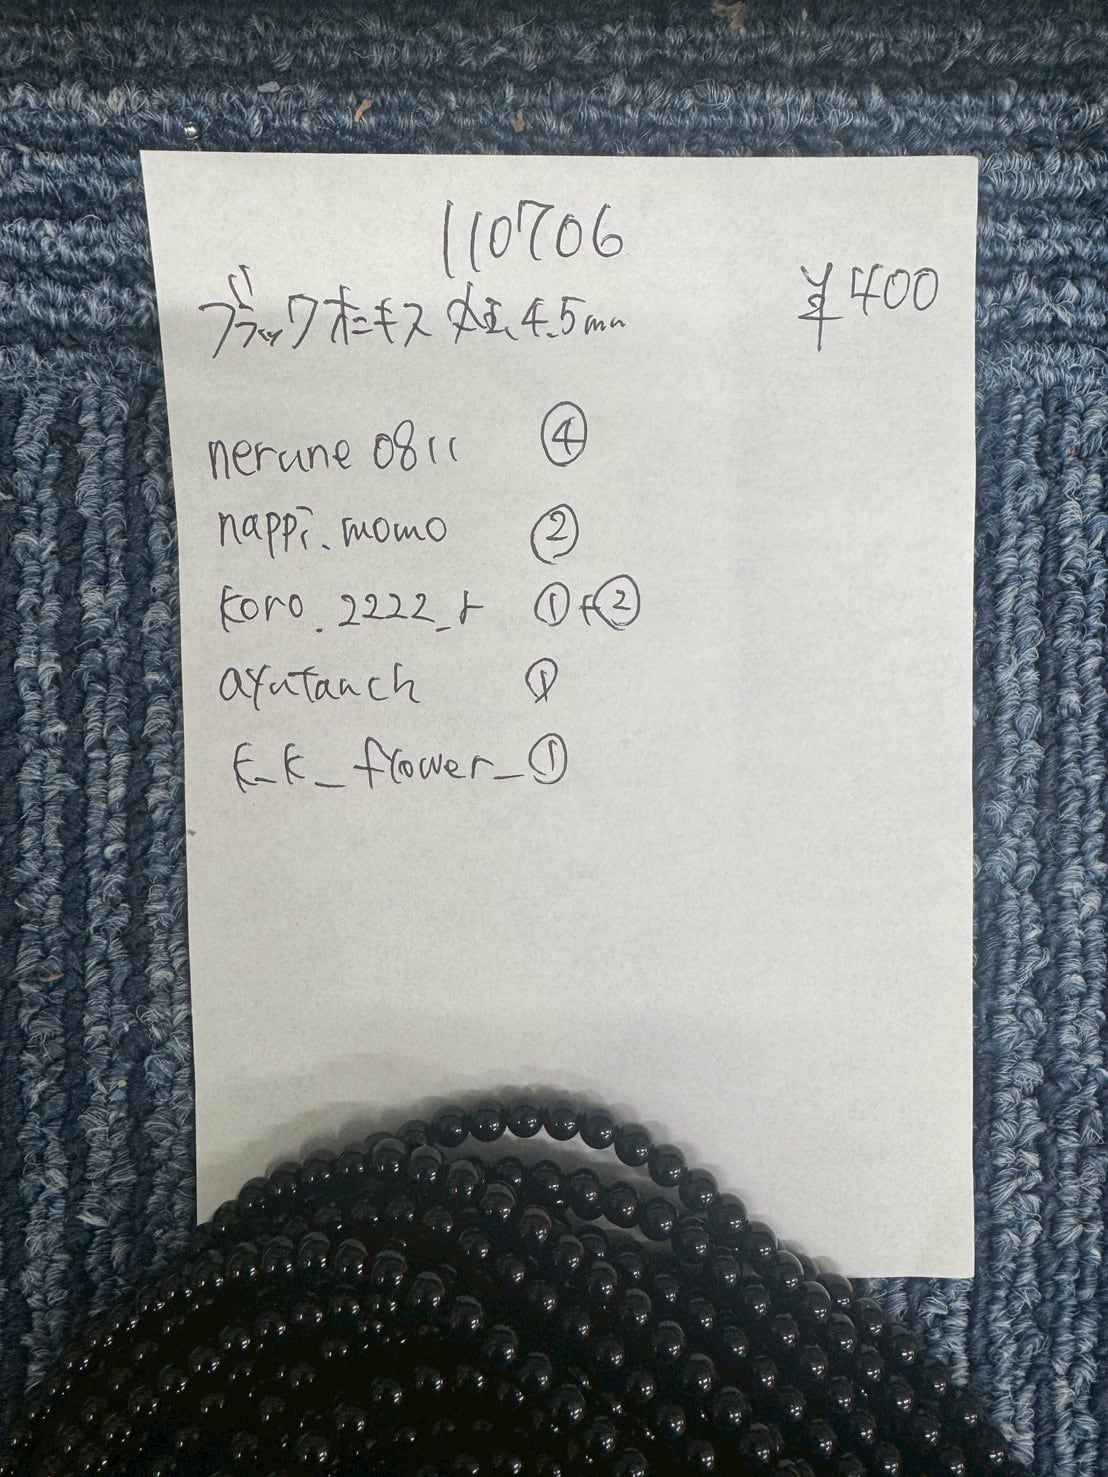 110706
ブラックオニキス 丸玉 4.5mm ¥400
nerune0811 ④
nappi.momo ②
koro.2222_r ①+②
ayutanch ①
k_k_flower_ ①